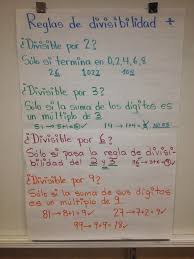 Reglas de divisibilidad ÷
¿Divisible por 2?
Sólo si termina en 0,2,4,6,8
26 1022
¿Divisible por 3?
Sólo si la suma de los dígitos es
un múltiplo de 3
51 → 5+1=6✓ 14 → 1+4=5
¿Divisible por 6?
Sólo si pasa la regla de divisi-
bilidad del 2 y 3
¿Divisible por 9?
Sólo si la suma de sus dígitos es
un múltiplo de 9
81 → 8+1=9✓ 27 → 2+7=9✓
99 → 9+9=18✓